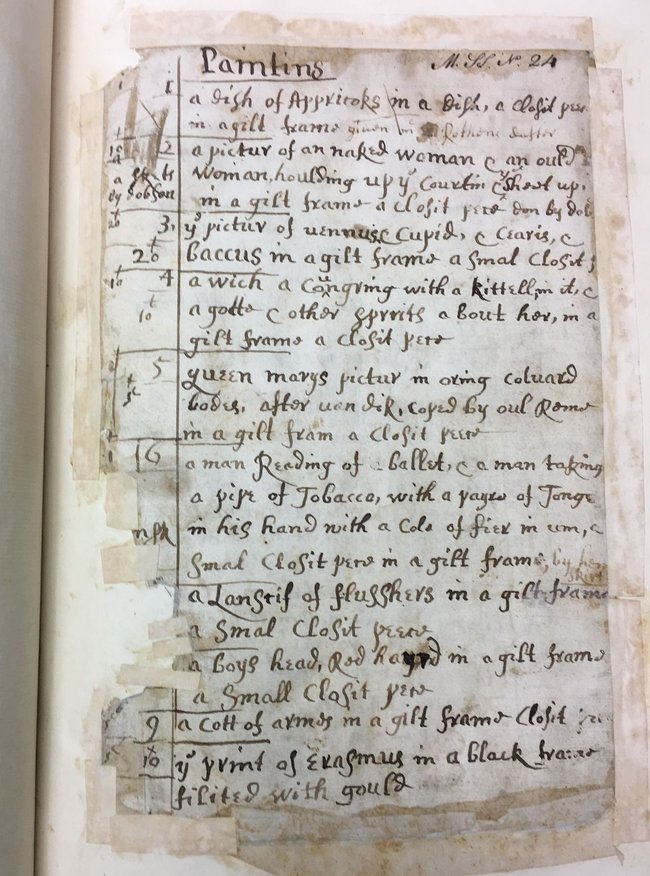 Paintins
M.SS. No. 24
1 a dish of Appricoks in a dish, a closit pee
in a gilt frame given
2 a pictur of an naked woman & an ould
woman, houlding up ye Courtin & ye sheet up,
by Dobson in a gilt frame a closit pece don by dob
3, ye pictur of uennus & Cupid, & Cearis, &
20 Baccus in a gilt frame a Smal Closit
4 a wich a Congring with a kittell in it, &
10 a gotte & other sprits a bout her, in a
gilt frame a closit pece
5 queen marys pictur in oring coluard
bodes, after uan dik, coped by oul Reme
in a gilt fram a closit peece
6 a man Reading of a ballet, & a man taking
a pipe of Tobacca, with a payre of Tonge
in his hand with a Cole of fier in um, a
Smal Closit pece in a gilt frame, by
a Lanscif of flusshers in a gilt frame
a Smal Closit peece
a boys head, Red hayrd in a gilt frame
a Small Closit pece
9 a Cott of armes in a gilt frame Closit
10 ye print of Erasmus in a black frame
filited with gould